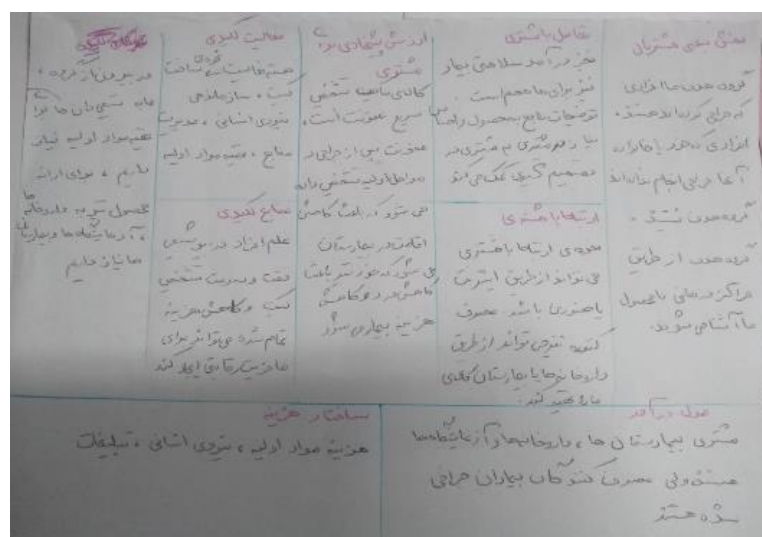 بخش بندی مشتریان
گروه هدف ما افرادی
که جراحی کرده اند هستند،
افرادی که خود یا خانواده
آنها جراحی انجام نداده اند
گروه هدف نیستند.
گروه هدف از طریق
مراکز درمانی با محصول
ما آشنا می شوند.
تعامل با مشتری
بجز درآمد سلامتی بیمار
نیز برای ما مهم است.
توضیحات جامع محصول و
مشتری به مشتری در
تصمیم گیری کمک می کند
ارتباط با مشتری
نحوه ی ارتباط با مشتری
می تواند از طریق اینترنت
یا حضوری باشد. مصرف
کننده نیز می تواند از طریق
داروخانه ها یا بیمارستان کالای
ما را تهیه کند.
ارزش پیشنهادی برای
مشتری
کالای ما کیت تشخیص
سریع عفونت است،
عفونت پس از جراحی در
مراحل اولیه تشخیص داده
می شود که باعث کاهش
اقامت در بیمارستان
می شود در نتیجه باعث
کاهش درد و کاهش
هزینه بیماری شود
فعالیت کلیدی
ساخت
کیت، سازماندهی
نیروی انسانی، مدیریت
منابع، تهیه مواد اولیه
منابع کلیدی
علم افراد در
دقت و سرعت تشخیص
کیت و کاهش هزینه
تمام شده می تواند برای
ما مزیت رقابتی ایجاد کند
در بیرون از گروه،
ما به شیمی دان ها برای
تهیه مواد اولیه نیاز
داریم، برای ارائه
محصول نیز به داروخانه ها
، آزمایشگاه ها و بیمارستان
ها نیاز داریم
مدل درآمد
مشتری بیمارستان ها، داروخانه ها و آزمایشگاه ها
هستند ولی مصرف کنندگان بیماران جراحی
شده هستند
ساختار هزینه
هزینه مواد اولیه، نیروی انسانی، تبلیغات